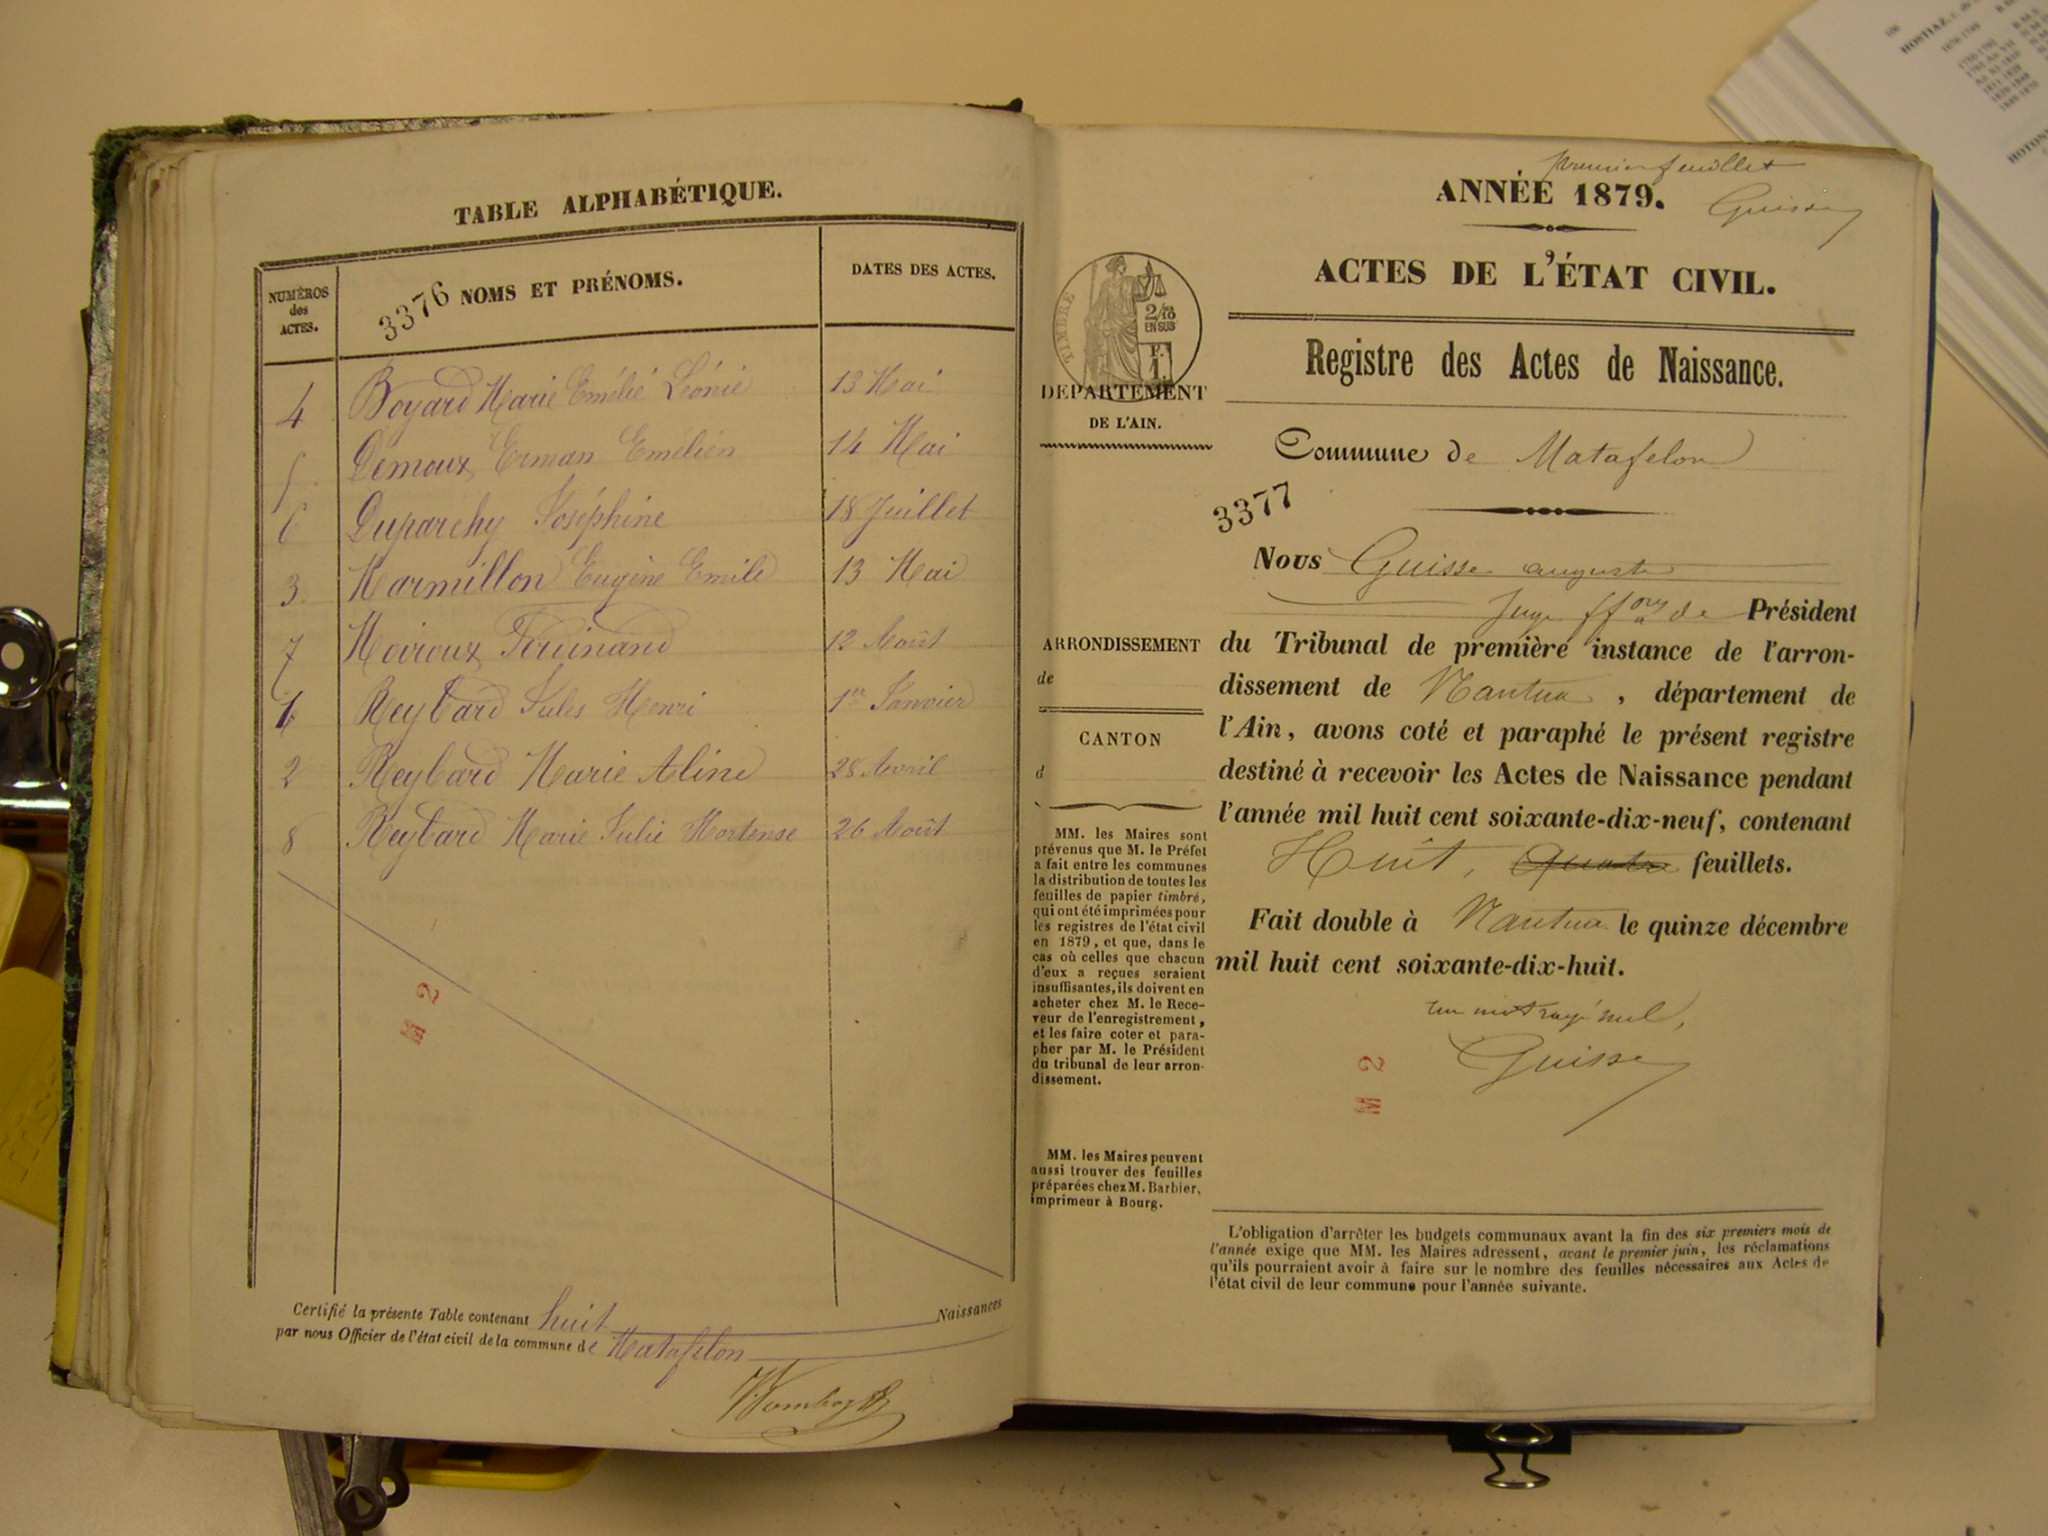 TABLE ALPHABÉTIQUE.
NUMÉROS
des
ACTES.
3376
NOMS ET PRÉNOMS.
DATES DES ACTES.
4 Boyard Marie Emélie Léonie 13 Mai
5 Démoux Erman Emélien 14 Mai
6 Duparchy Joséphine 18 Juillet
3 Marmillon Eugène Emile 13 Mai
7 Moiroux Ferdinand 12 Août
1 Reybard Jules Henri 1er Janvier
2 Reybard Marie Aline 28 Avril
8 Reybard Marie Julie Hortense 26 Août
M 2
Certifié la présente Table contenant huit Naissances
par nous Officier de l'état civil de la commune de Matafelon
premier feuillet
ANNÉE 1879.
Guisse
ACTES DE L'ÉTAT CIVIL.
TIMBRE
2/10
EN SUS
F.
1.
DÉPARTEMENT
DE L'AIN.
Registre des Actes de Naissance.
Commune de Matafelon
3377
Nous Guisse auguste
Juge ffons de Président
du Tribunal de première instance de l'arron-
dissement de Nantua, département de
l'Ain, avons coté et paraphé le présent registre
destiné à recevoir les Actes de Naissance pendant
l'année mil huit cent soixante-dix-neuf, contenant
Huit, Quatre feuillets.
Fait double à Nantua le quinze décembre
mil huit cent soixante-dix-huit.
un mot rayé nul,
Guisse
M 2
ARRONDISSEMENT
de
CANTON
d
MM. les Maires sont
prévenus que M. le Préfet
a fait entre les communes
la distribution de toutes les
feuilles de papier timbré,
qui ont été imprimées pour
les registres de l'état civil
en 1879, et que, dans le
cas où celles que chacun
d'eux a reçues seraient
insuffisantes, ils doivent en
acheter chez M. le Rece-
veur de l'enregistrement,
et les faire coter et para-
pher par M. le Président
du tribunal de leur arron-
dissement.
MM. les Maires peuvent
aussi trouver des feuilles
préparées chez M. Barbier,
imprimeur à Bourg.
L'obligation d'arrêter les budgets communaux avant la fin des six premiers mois de
l'année exige que MM. les Maires adressent, avant le premier juin, les réclamations
qu'ils pourraient avoir à faire sur le nombre des feuilles nécessaires aux Actes de
l'état civil de leur commune pour l'année suivante.